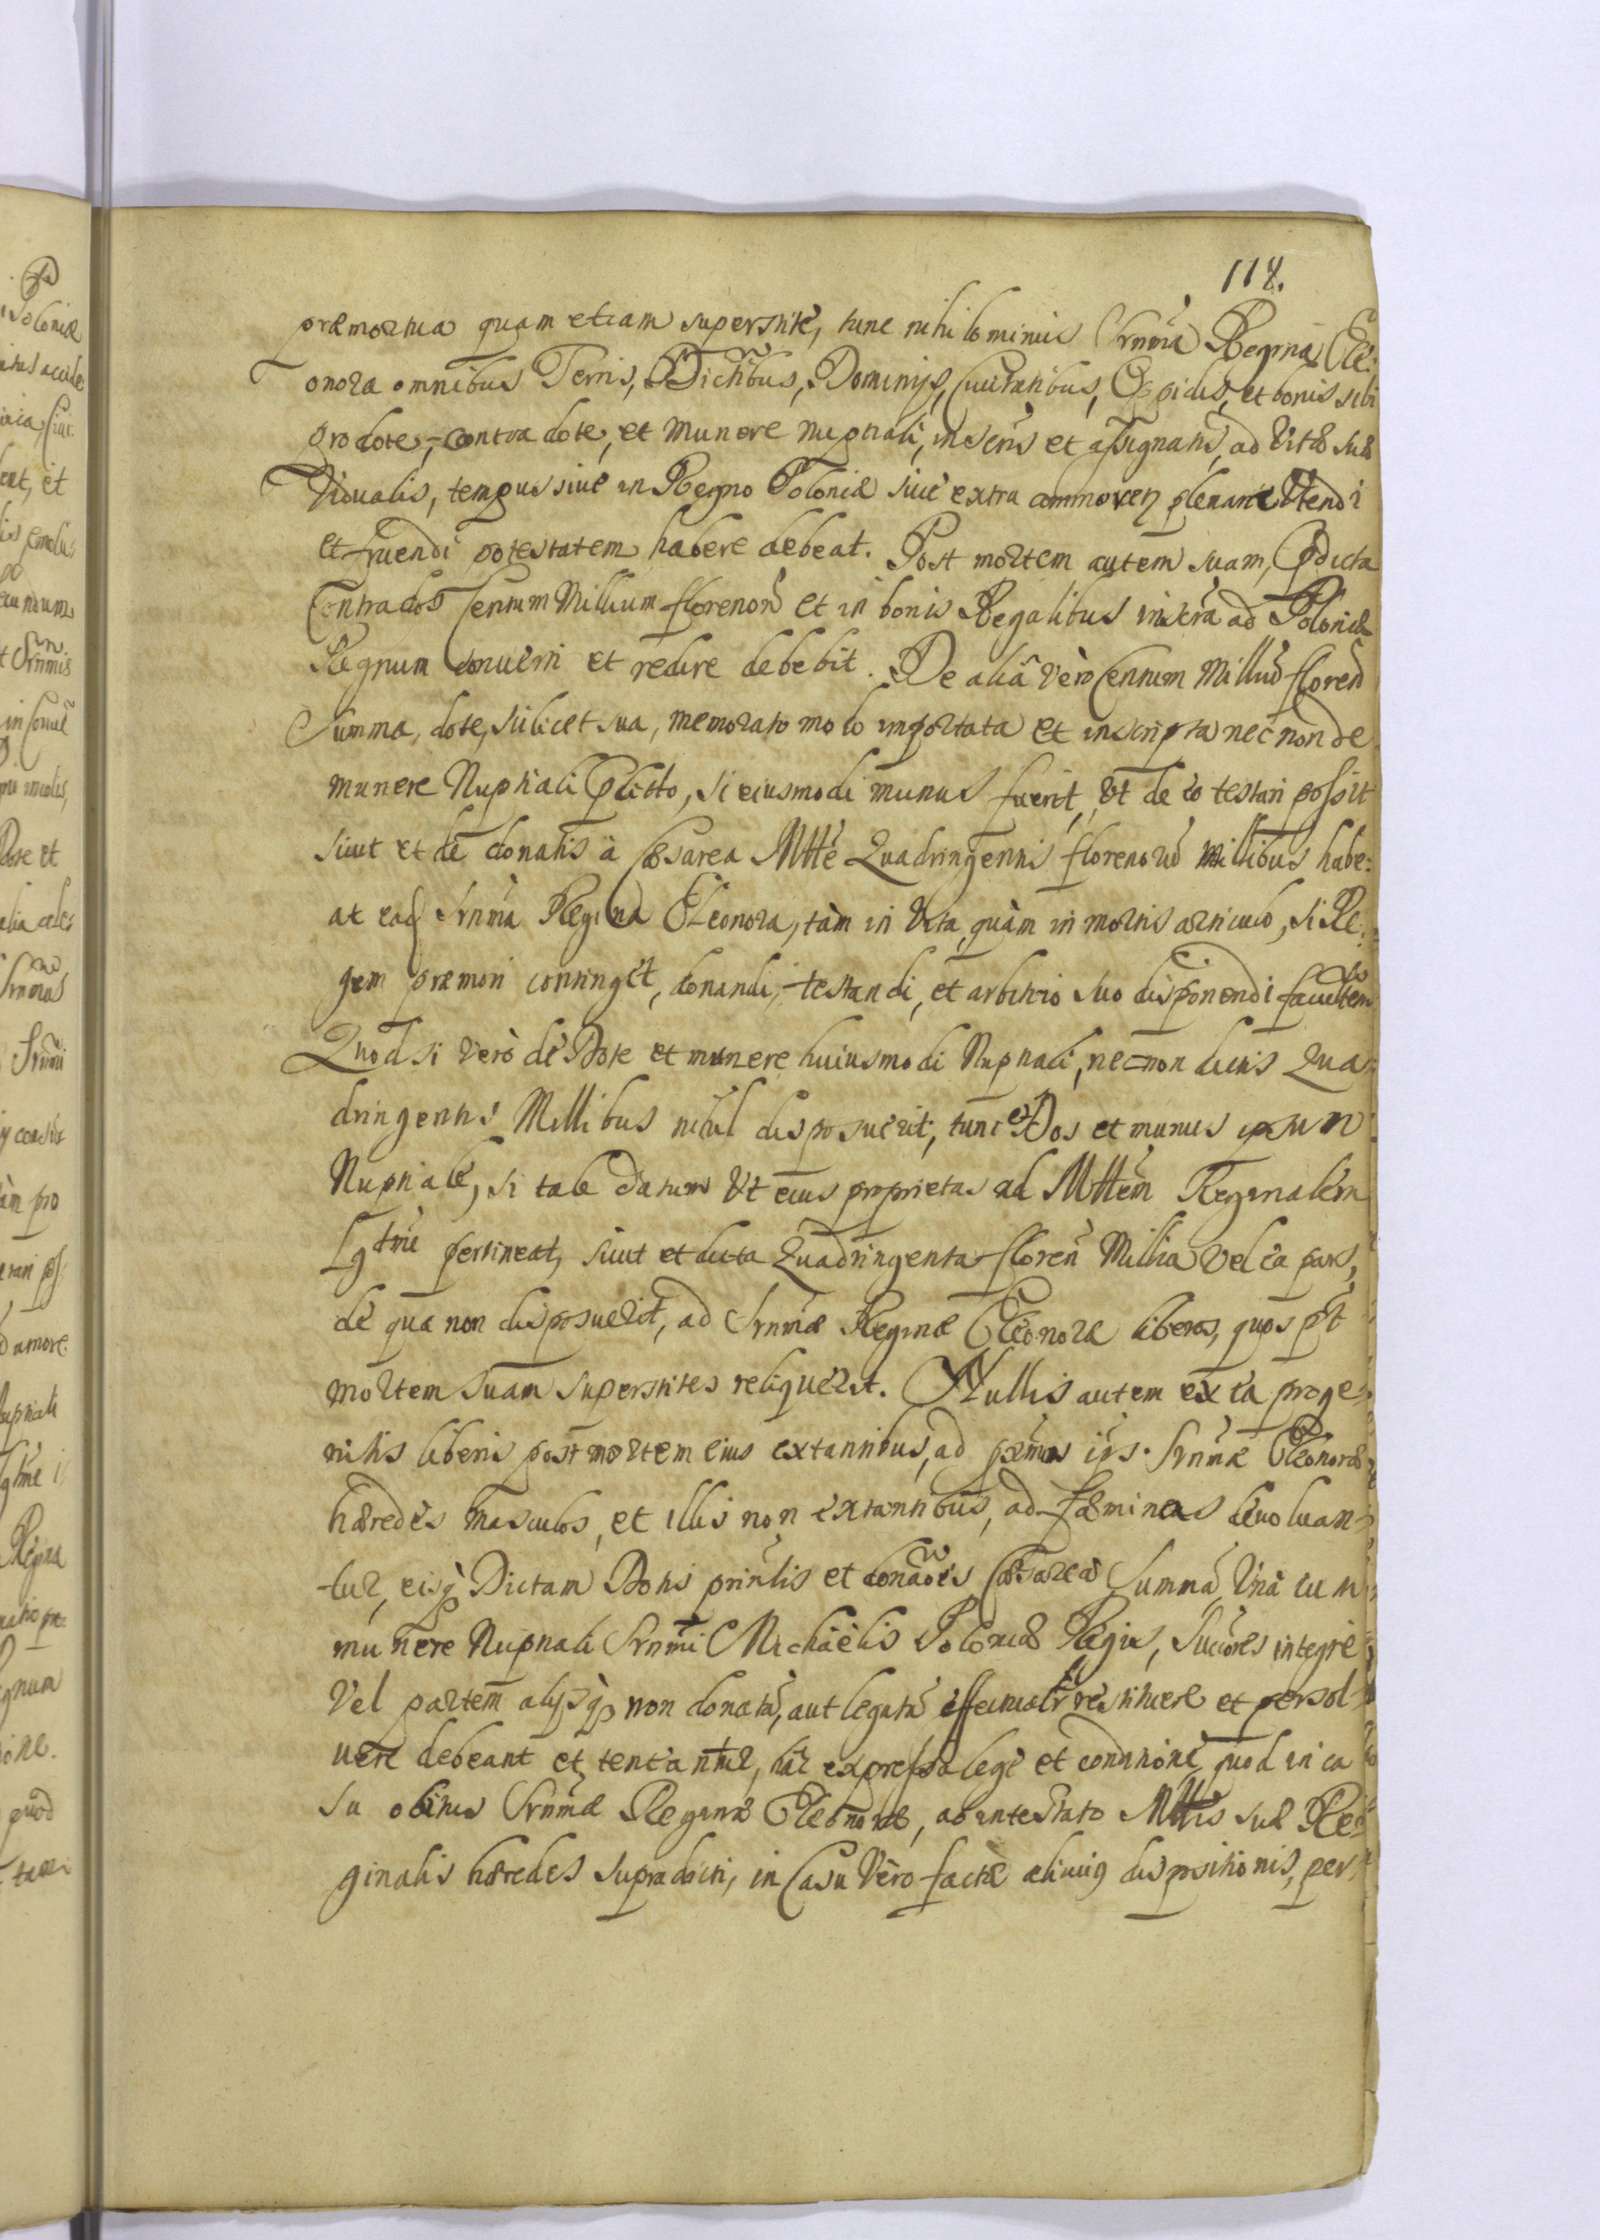 118.
præmortua quam etiam superstite, tunc nihilominus Srnmã Regina Ele:
onora omnibus Terris, Ditibus, Dominijs, Civitatibus, Oppidis, et bonis sibi
pro dote, contra dote, et munere nuptiali, inscris et assignatis, ad Vitæ suæ
Vidualis, tempus sive in Regno Poloniæ sive extra commorer plenariè Utendi
et fruendi potestatem habere debeat. Post mortem autem suam, pdicta
Contrados Centum Millium florenorũ et in bonis Regalibus inscrã ad Poloniæ
Regnum converti et redire debebit. De aliâ verò Centum Milliũ florenũ
Summa, dote, scilicet sua, memorato modo importata et inscripta nec non de
munere Nuptiali pdicto, si eiusmodi munus fuerit, Ut de eo testari possit
sicut et de donatis à Cæsarea Mtte Quadringentis florenorũ Millibus habe:
at eadē Srnmã Regina Eleonora, tàm in Vita, quàm in mortis articulo, si Re:
gem præmori contingẽt, donandi, testandi, et arbitrio suo disponendi facultem
Quod si verò de Dote et munere huiusmodi Nuptiali, necnon dictis Qua:
dringentis Millibus nihil disposuerit, tunc et Dos et munus ipsum
Nuptiale, si tale datum Ut eius proprietas ad Mttem Reginalem
Lgtmè pertineat, sicut et dicta Quadringenta florenũ Millia vel ea pars,
de qua non disposuerit, ad Srnmæ Reginæ Eleonoræ liberos, quos pt
mortem suam superstites reliquerit. Nullis autem ex ea proge:
nitis liberis post mortem eius extantibus, ad pximos ips. Srnmæ Eleonoræ
hæredes masculos, et illis non extantibus, ad fæminas devoluan:
tur, eisq; Dictam Dotis prinlis et donaões Cæsareæ Summã Unà cum
munere Nuptiali Srnmi Michaëlis Poloniæ Regis, Succores integrè
Vel partem alijsq; non donatã, aut legatã effectualr restituere et persol:
vere debeant et teneantur, hac expressa lege et conditione, quod in ca
su obitus Srnmæ Reginæ Eleonoræ, ab intestato Mttis suæ Re:
ginalis hæredes supradicti, in Casu Vero factæ alicuius dispositionis, per